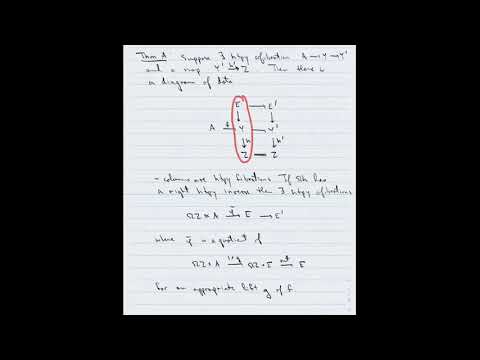 Thm A. Suppose ∃ htpy cofibration A → Y → Y'
and a map Y' →h' Z. Then there is
a diagram of data
E → E'
A →f Y → Y'
↓h ↓h'
Z = Z
- columns are htpy fibrations. If Ωh has
a right htpy inverse then ∃ htpy cofibrations
ΩZ ⋉ A → E → E'
where is a quotient of
ΩZ × A →1×g ΩZ × E → E
for an appropriate lift g of f.